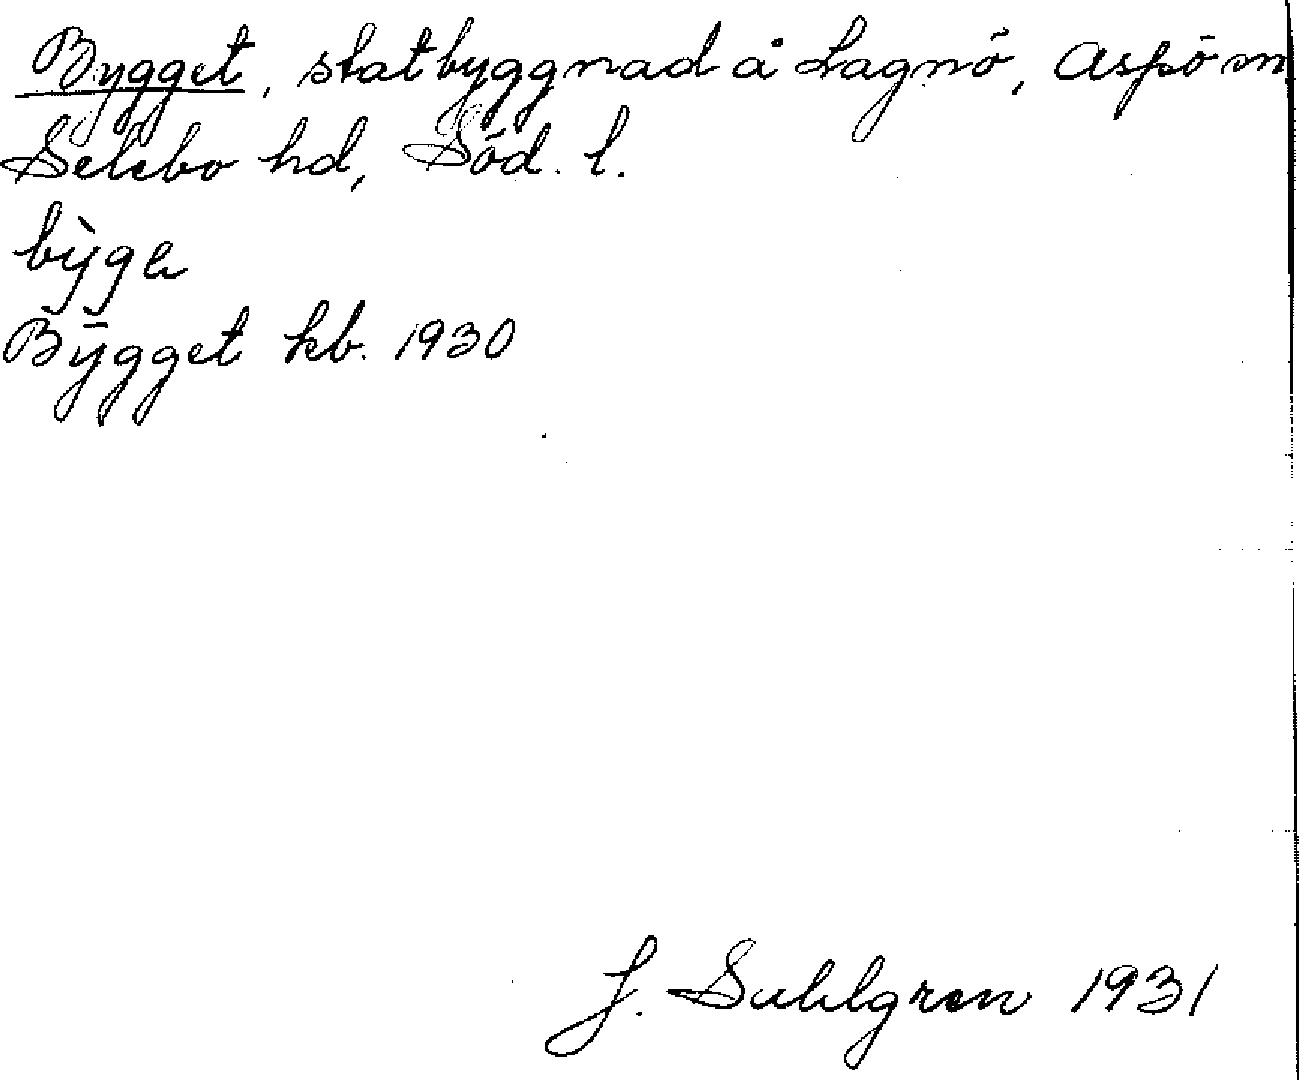 Bygget, statbyggnad å Lagnö, Aspö sn
Selebo hd, Söd. l.
bỳgə
Bygget kb. 1930
J. Sahlgren 1931